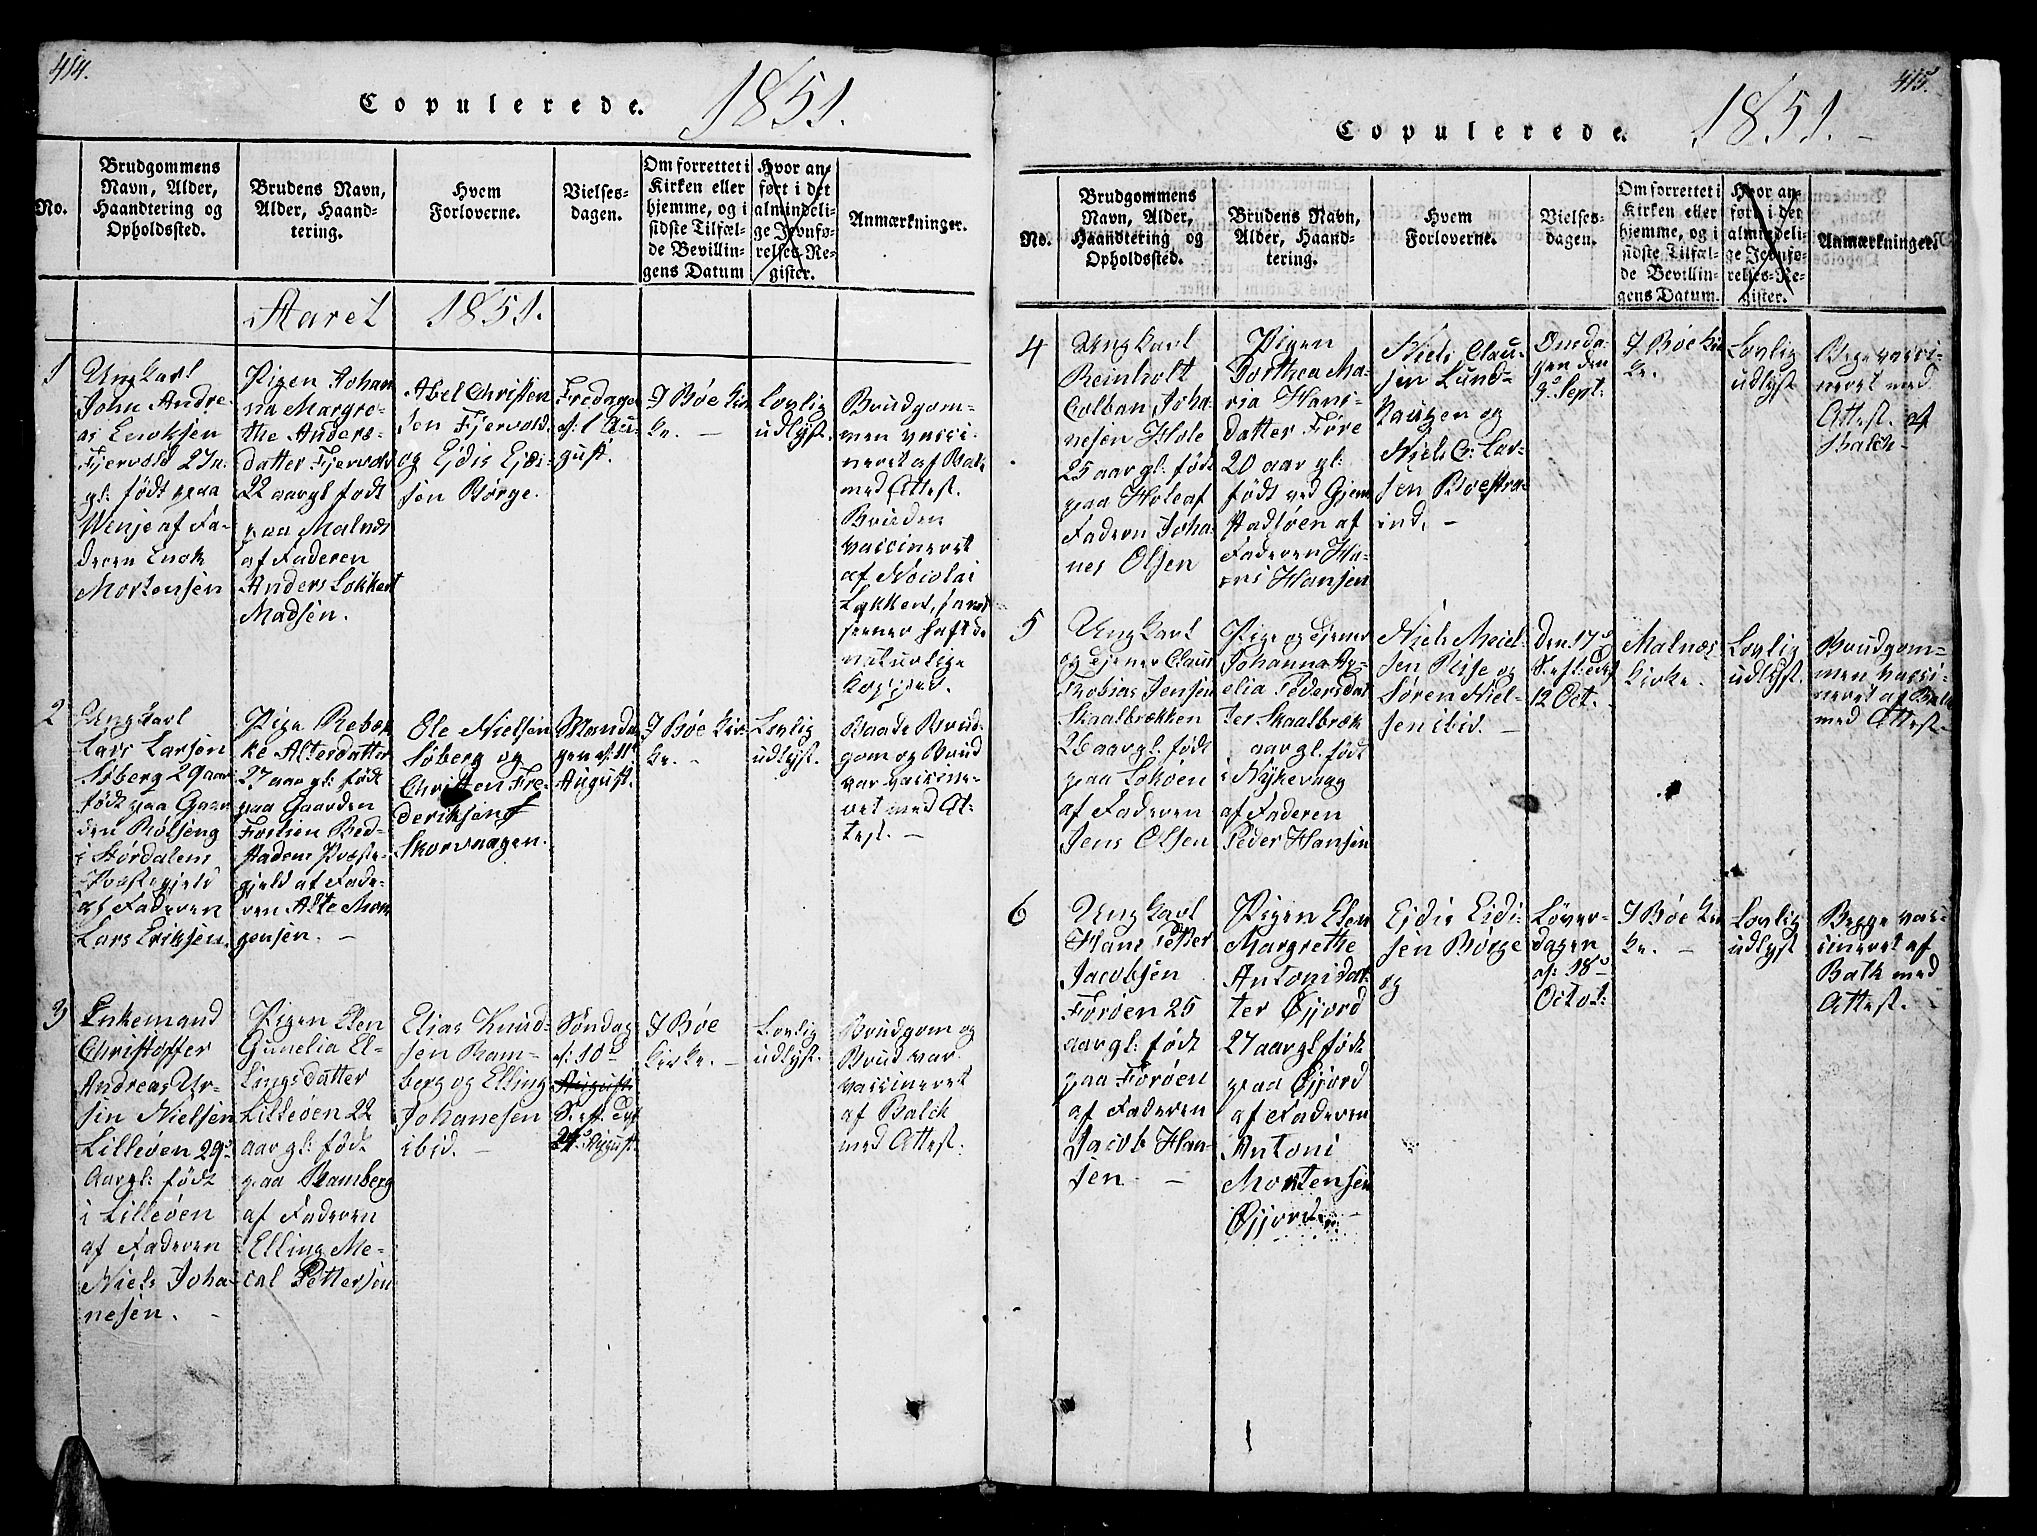 414.
Copulerede. 1851.
No.
Brudgommens
Navn, Alder,
Haandtering og
Opholdssted.
Brudens Navn,
Alder, Haand-
tering.
Hvem
Forloverne.
Vielses-
dagen.
Om forrettet i
Kirken eller
hjemme, og i
sidste Tilfæl-
de Bevillin-
gens Datum
Hvor an-
ført i det
almindeli-
ge Jevnfø-
relses-Re-
gister.
Anmærkninger.
Aaret 1851.
1
Ungkarl
John Andre-
as Enoksen
Fjervold 27 a.
gl: født paa
Wenje af Fa-
deren Enok
Mortensen
Pigen Johan
na Margre-
the Anders-
datter Fjervold
22 aar gl født
paa Malnæs
af Faderen
Anders Lokkert
Madsen.
Abel Christen
sen Fjervold
og Ejdis Ejdi-
sen Børge.
Fredagen
d: 1 Au-
gust.
I Bøe Kir
ke. —
Lovlig
udlyst.
Brudgom-
men vacci-
neret af Balk
med Attest.
Bruden
vaccineret
af Nicolai
Lykken,
senere haft de
naturlige
Kopper.
2
Ungkarl
Lars Larsen
Søberg 29 aar
født paa Gaar
den Rølseng
i Størdalens
Præstegjeld
af Faderen
Lars Eriksen.
Pige Rebæk
ke Altersdatter
27 aar gl: født
paa Gaarden
Forlien Bed-
stadens Præste-
gjeld af Fade-
ren Alte Mon
gensen. —
Ole Nielsen
Søberg og
Christen Fre
deriksen af
Skorvaagen.
Manda
gen d: 11te
August.
I Bøe Kir-
ke. —
Lovlig
udlyst.
Baade Brud-
gom og Brud
var vaccine-
ret med At-
test. —
3
Enkemand
Christoffer
Andreas Ur-
sin Nielsen
Lilleøen 29
Aar gl: født
i Lilleøen
af Faderen
Niels Joha-
nesen. —
Pigen Elen
Gunelia El-
lingsdatter
Lilleøen 22
aar gl: født
paa Ramberg
af Faderen
Elling Me-
cal Pettersen
Elias Knud-
sen Ram-
berg og Elling
Johanesen
ibid. —
Søndag
d: 10d
August
S. eft. Tref
24 August.
I Bøe
Kirke. —
Lovlig
udlyst.
Brudgom og
Brud var
vaccineret
af Balck
med Attest.
415.
Copulerede. 1851. —
No.
Brudgommens
Navn, Alder,
Haandtering og
Opholdssted.
Brudens Navn,
Alder, Haand-
tering.
Hvem
Forloverne.
Vielses-
dagen.
Om forrettet i
Kirken eller
hjemme, og i
sidste Tilfæl-
de Bevillin-
gens Datum.
Hvor an-
ført i det
almindeli-
ge Jevnfø-
relses-Re-
gister.
Anmærkninger.
4
Ungkarl
Reinholt
Colban Joha-
nesen Hole
25 aar gl: født
paa Hole af
Fadern Joha-
nes Olsen
Pigen
Dorthea Ma-
ria Hans-
datter Føre
20 aar gl:
født ved Gjem
stadløen af
Faderen Ha-
ns Hansen
Niels Clau-
sen Lund-
haugen og
Niels C: Lar-
sen Bøestra
ind. —
Onsda-
gen den
3d Sept:
I Bøe Kir
ke.
Lovlig
udlyst
Bege vacci-
neret med
Attest af
Balck —
5
Ungkarl
og tjener Claus
Thobias Jensen
Skaalbrækken
26 aar gl. født
paa Lokøen
af Faderen
Jens Olsen
Pige og tjener
Johanna Au-
elia Pedersdat
ter Skaalbræk
aar gl. født
i Nykevaag
af Faderen
Peder Hansen
Niels Meiel-
sen Reise og
Søren Niel-
sen ibid. —
Den 17d
S. eft: Tref
12 Oct. —
Malnæs
Kirke.
Lovlig
udlyst.
Brudgom-
men vacci-
neret af Balk
med Attest.
6
Ungkarl
Hans Petter
Jacobsen
Forøen 25
aar gl: født
paa Forøen
af Faderen
Jacob Han-
sen. —
Pigen Elen
Margrethe
Antonidat
ter Øjjord
27 aar gl født
paa Øjjord
af Faderen
Antoni
Mortensen
Øjjord.
Ejdis Eidi-
sen Børge
og
Løver-
dagen
d: 18d
Octob:
I Bøe Kir
ke. —
Lovlig
udlyst
Begge vac-
cineret af
Balk med
Attest.